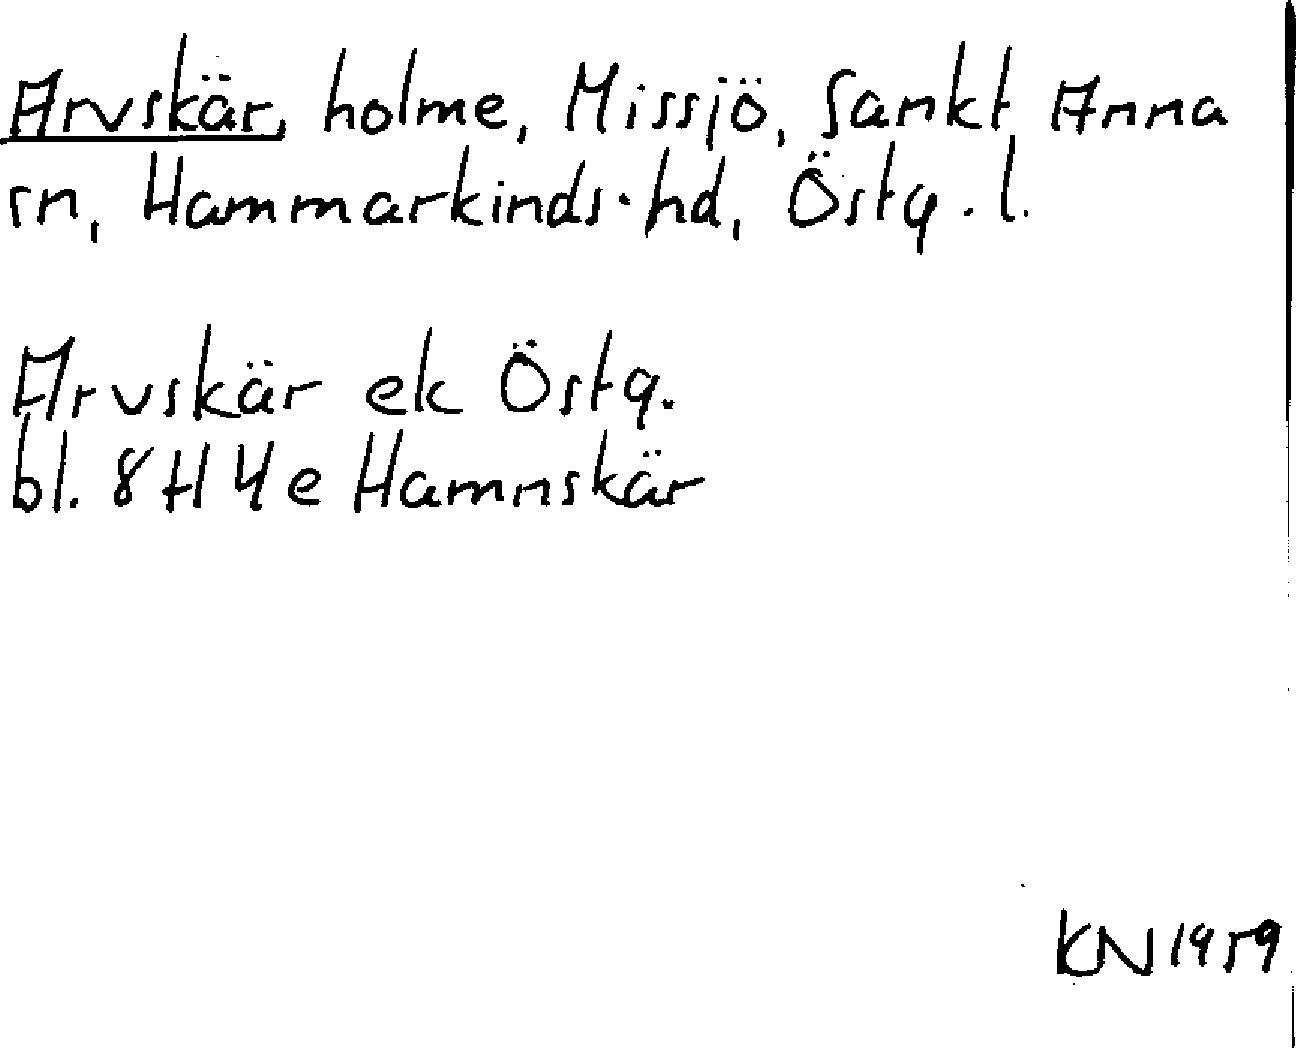 Arvskär, holme, Missjö, Sankt Anna
sn, Hammarkinds hd, Östg. l.
Arvskär ek Östg.
bl. 8H4e Hamnskär
KN 1959